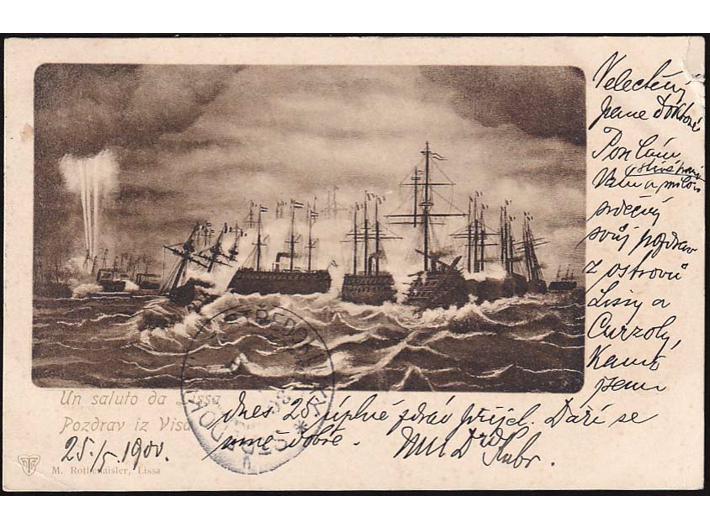 Velectěný
pane doktore
Posílám
Vám a milos
srdečný
svůj pozdrav
z ostrovů
Lissy a
Curzoly,
kamž
jsem
dnes 25 úplně zdráv přijel. Daří se
mně dobře. MUDr
Un saluto da Lissa
Pozdrav iz Visa
25./ 1900.
M. Rothenaisler, Lissa